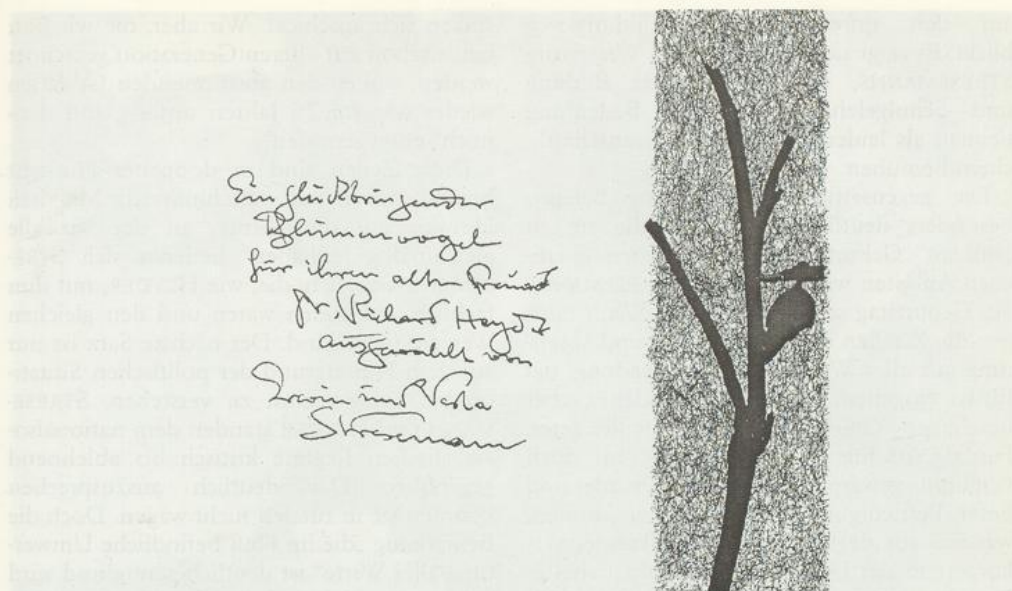 Ein glückbringender
Blumenvogel
für ihren alten Freund
Dr Richard Heyder
ausgewählt von
Erwin und Vesta
Stresemann